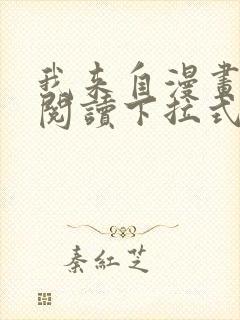 我来自漫畫
閱讀下拉式
秦紅芝